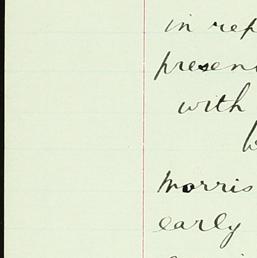 in rep
presen
with
Morris
early